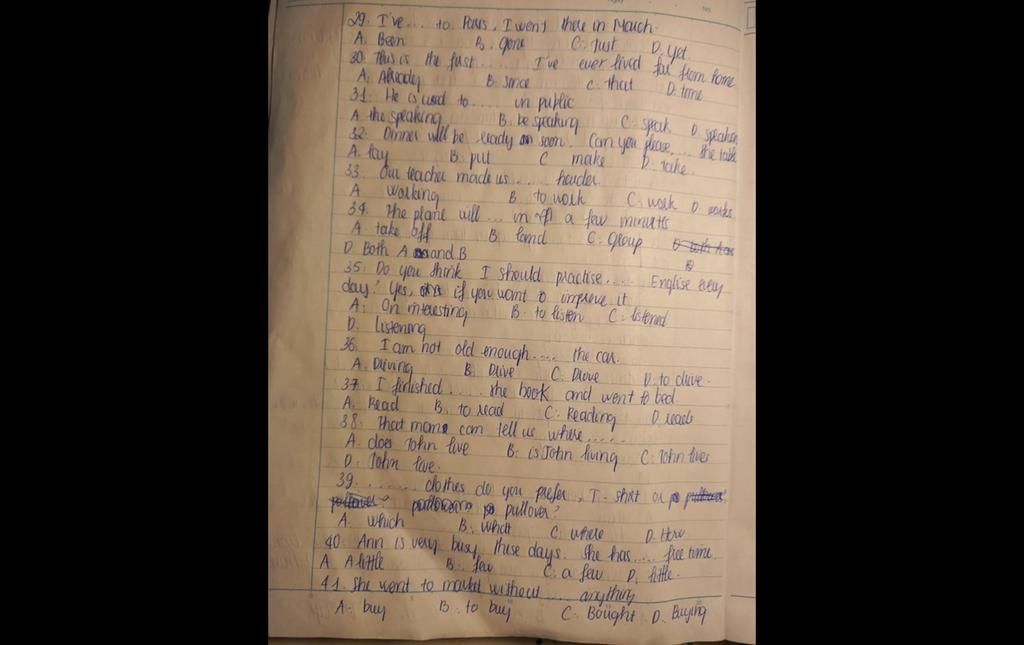 29. I've.... to Paris, I went there in March.
A. Been B. gone C. Just D. yet
30. This is the first...... I've ever lived far from home
A. Already B. since C. that D. time
31. He is used to..... in public
A. the speaking B. be speaking C. speak D. speaking
32. Dinner will be ready soon. Can you please..... the table
A. lay B. put C. make D. Take.
33. Our teacher made us..... harder.
A. Working B. to work C. work D. works
34. The plane will... in a few minutes
A. take off B. land C. group
D. Both A and B
35. Do you think I should practise..... Englise every
day? Yes, if you want to improve it
A. On interesting B. to listen C. listened
D. listening
36. I am not old enough.... the car.
A. Driving B. Drive C. Drove D. to drive.
37. I finished..... the book and went to bed.
A. Read B. to read C. Reading D. reads
38. That man can tell us where.....
A. does John live B. is John living C. John lives
D. John live.
39. ........ clothes do you prefer, T-shirt or
pullover?
A. which B. what C. where D. How
40. Ann is very busy these days. She has.... free time.
A. A little B. few C. a few D. little.
41. She went to market without.... anything
A. buy B. to buy C. Bought D. Buying